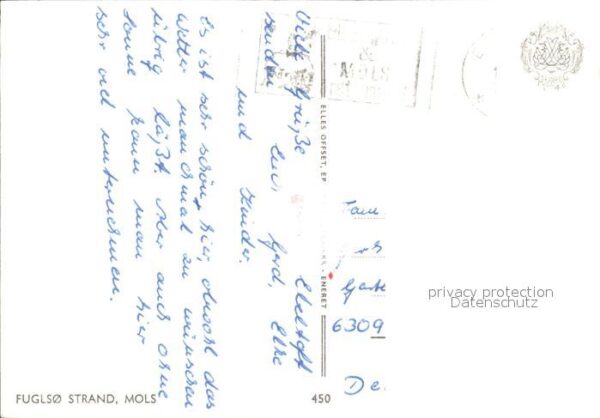 Viele Grüße Ebeltoft
senden Euch Gerd, Elke
und Kinder.
Es ist sehr schön hier, obwohl das
Wetter manchmal zu wünschen
übrig läßt. Aber auch ohne
Sonne kann man hier
sehr viel unternehmen.
&
MOLS
ELLES OFFSET, EB
ENERET
Fam
Garte
6309
De
privacy protection
Datenschutz
FUGLSØ STRAND, MOLS
450